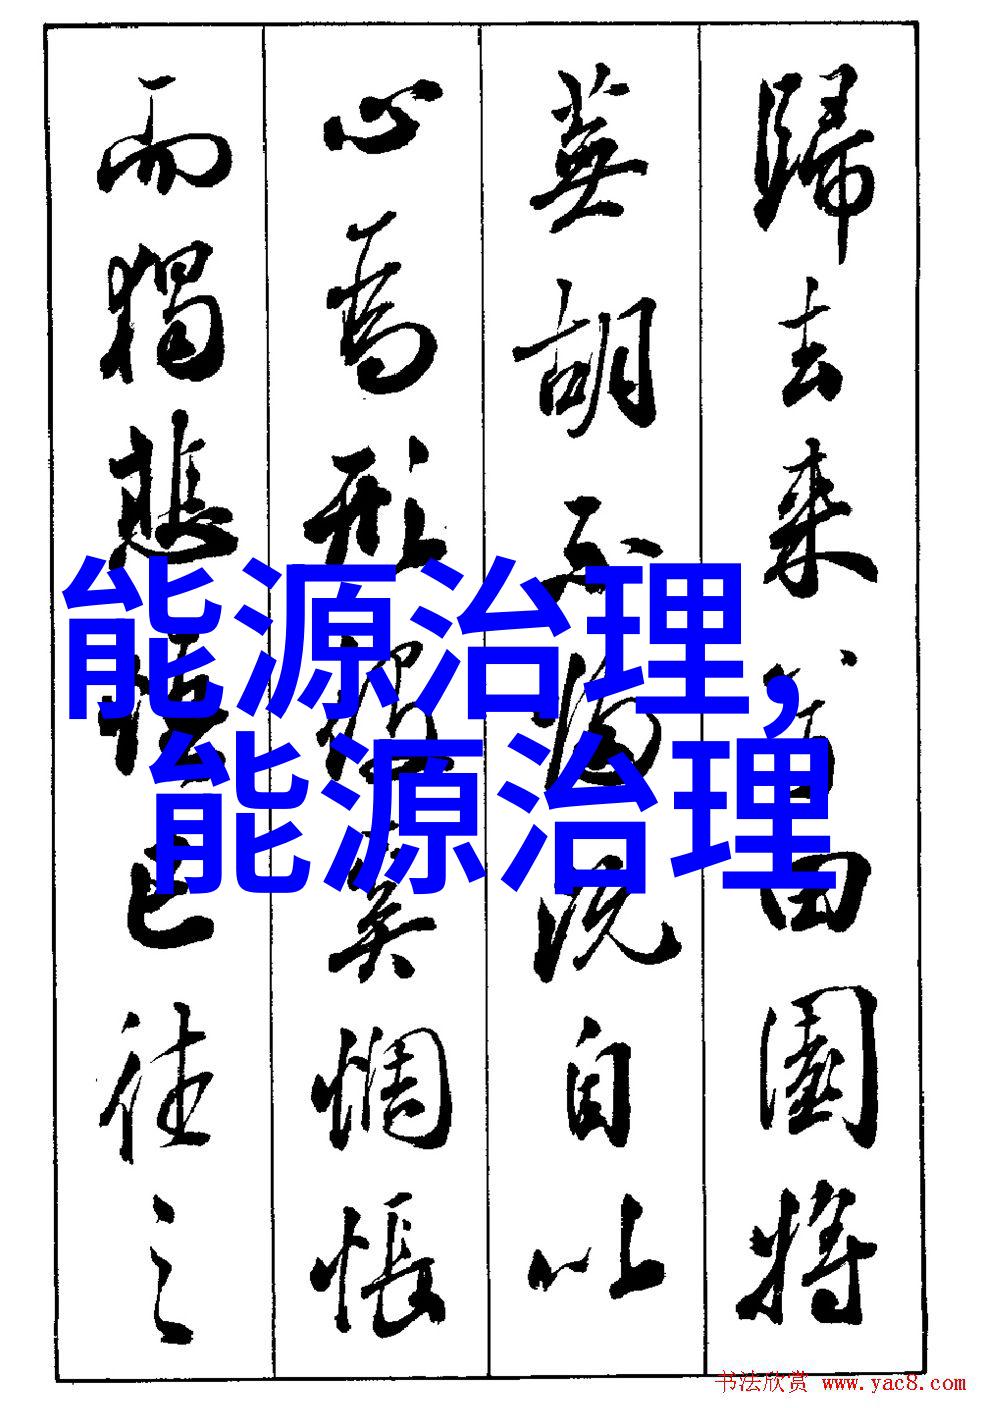 歸去來兮田園將
蕪胡不歸既自以
心為形役奚惆悵
而獨悲悟已往之
能源治理,
能源治理
书法欣赏 www.yac8.com